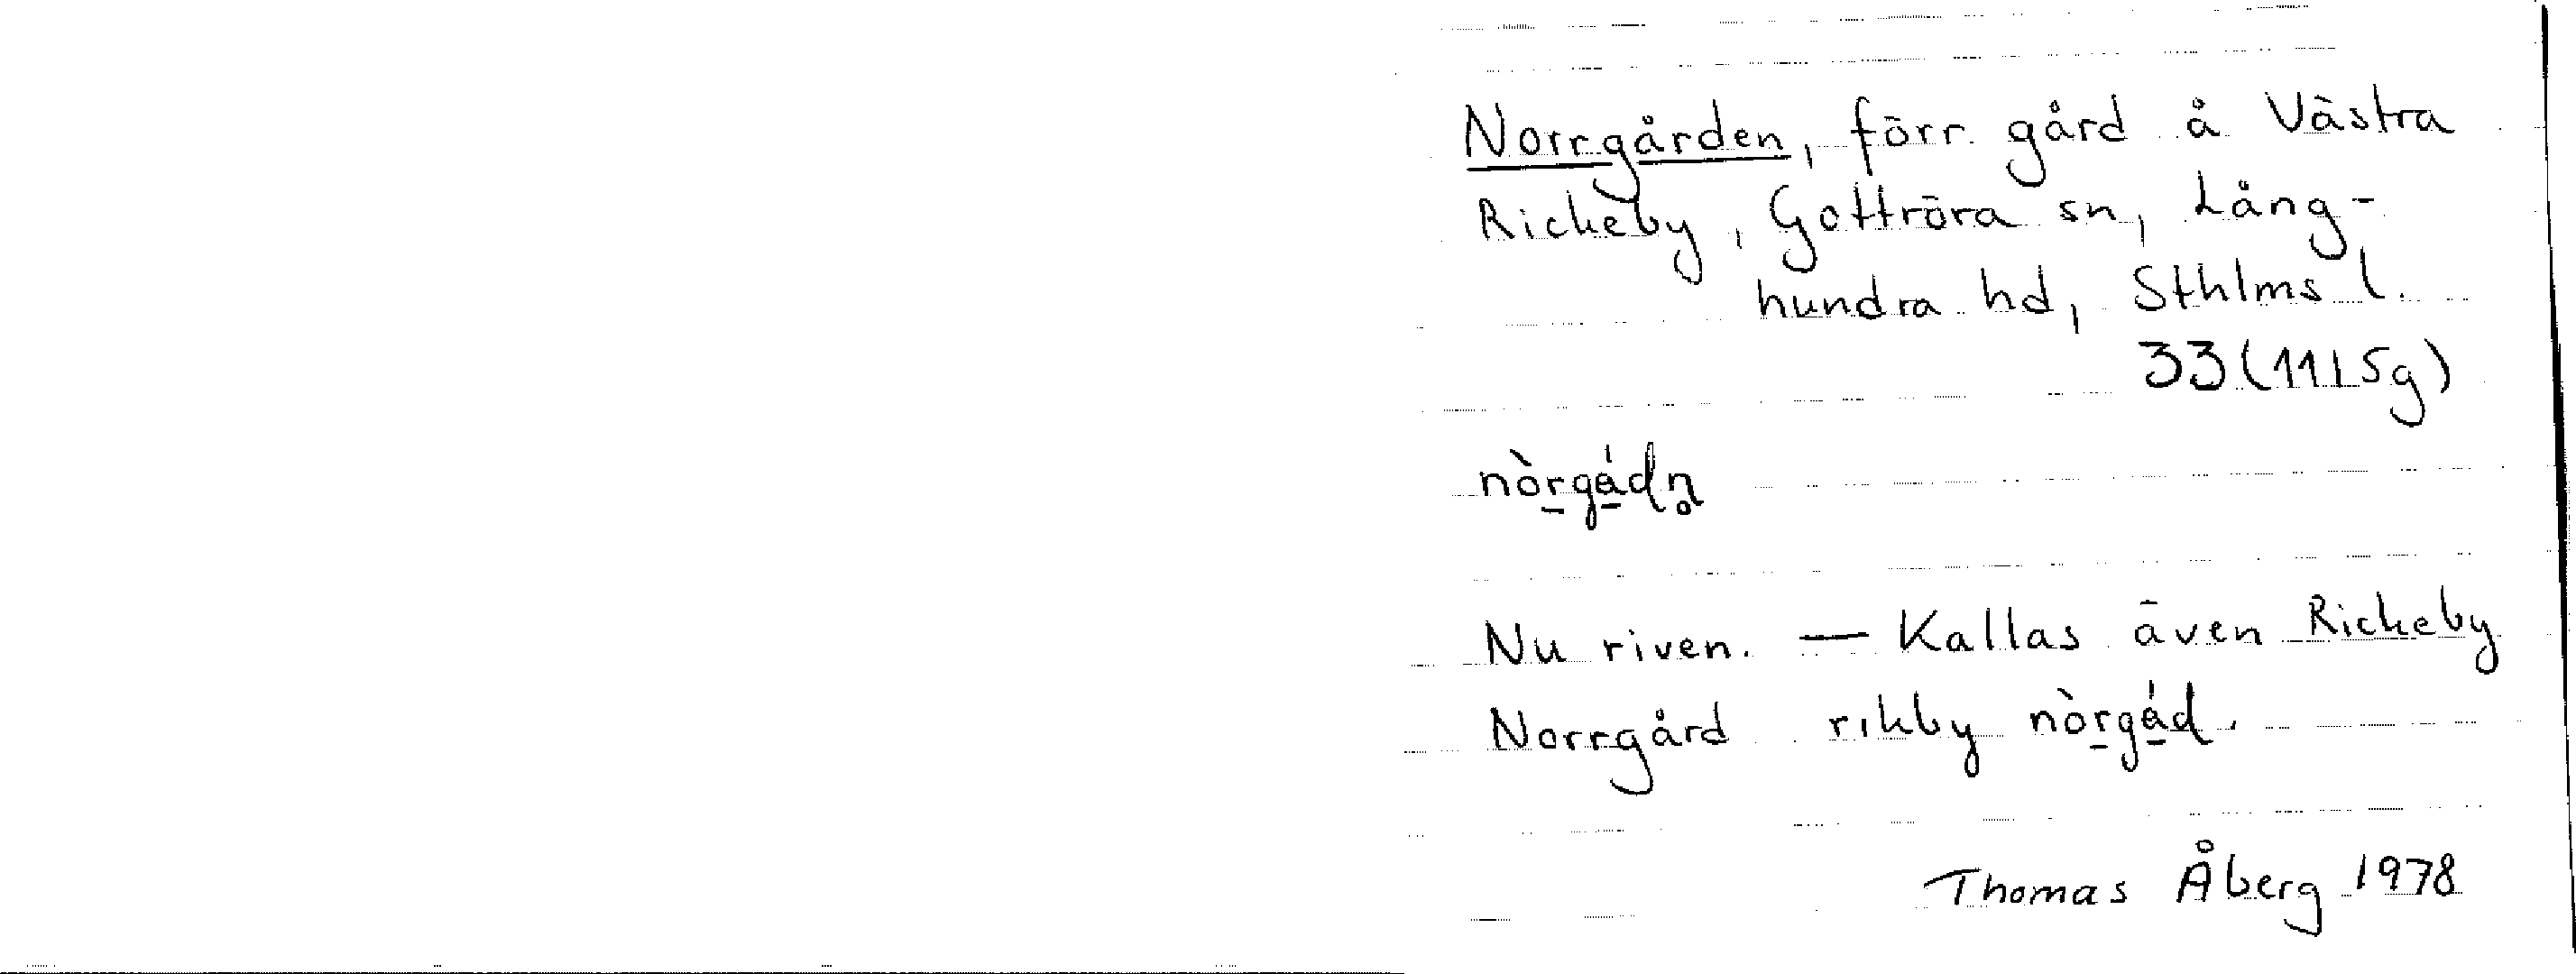 Norrgården, förr gård å Västra
Rickeby, Gottröra sn, Lång-
hundra hd, Sthlms l.
33 (11I5g)
nòrgådn̥
Nu riven. — Kallas även Rickeby
Norrgård rıkby nòrgåd.
Thomas Åberg 1978